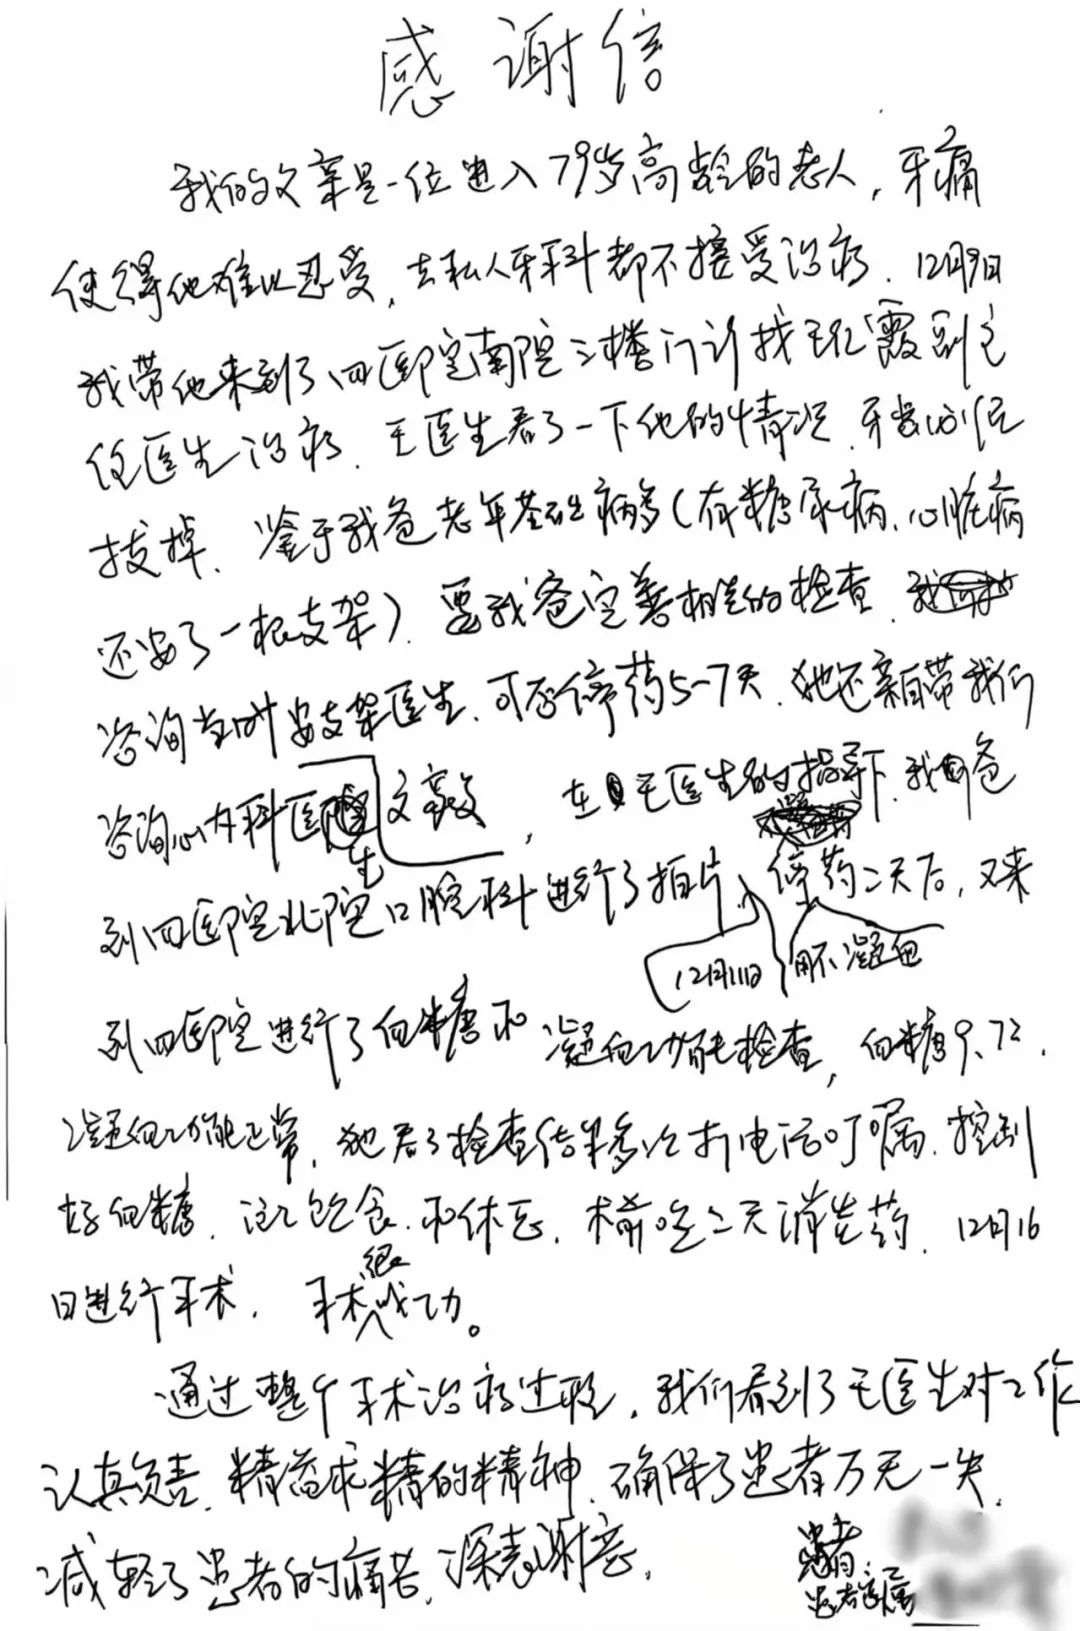 感谢信
我的父亲是一位进入79岁高龄的老人，牙痛
使得他难以忍受，去私人牙科都不接受治疗．12月9日
我带他来到了四医院南院三楼门诊找王红霞副主
任医生治疗．王医生看了一下他的情况．牙齿必须
拔掉．鉴于我爸老年基础病多（有糖尿病、心脏病
还安了一根支架）．要我爸完善相关的检查．
咨询当时安支架医生．可否停药5-7天．她还亲自带我们
咨询心内科医生文豪，在王医生的指导下．我爸
到四医院北院口腔科进行了拍片 12月11日 停药二天后，又来
用不凝血
到四医院进行了血糖和凝血功能检查，血糖9、72．
凝血功能正常，她看了检查结果多次打电话叮嘱．控制
好血糖．注意饮食．和休息．术前吃二天消炎药．12月16
日进行手术．手术很成功。
通过整个手术治疗过程，我们看到了王医生对工作
认真负责．精益求精的精神．确保了患者万无一失．
减轻了患者的痛苦，深表谢意．
患者：
患者家属